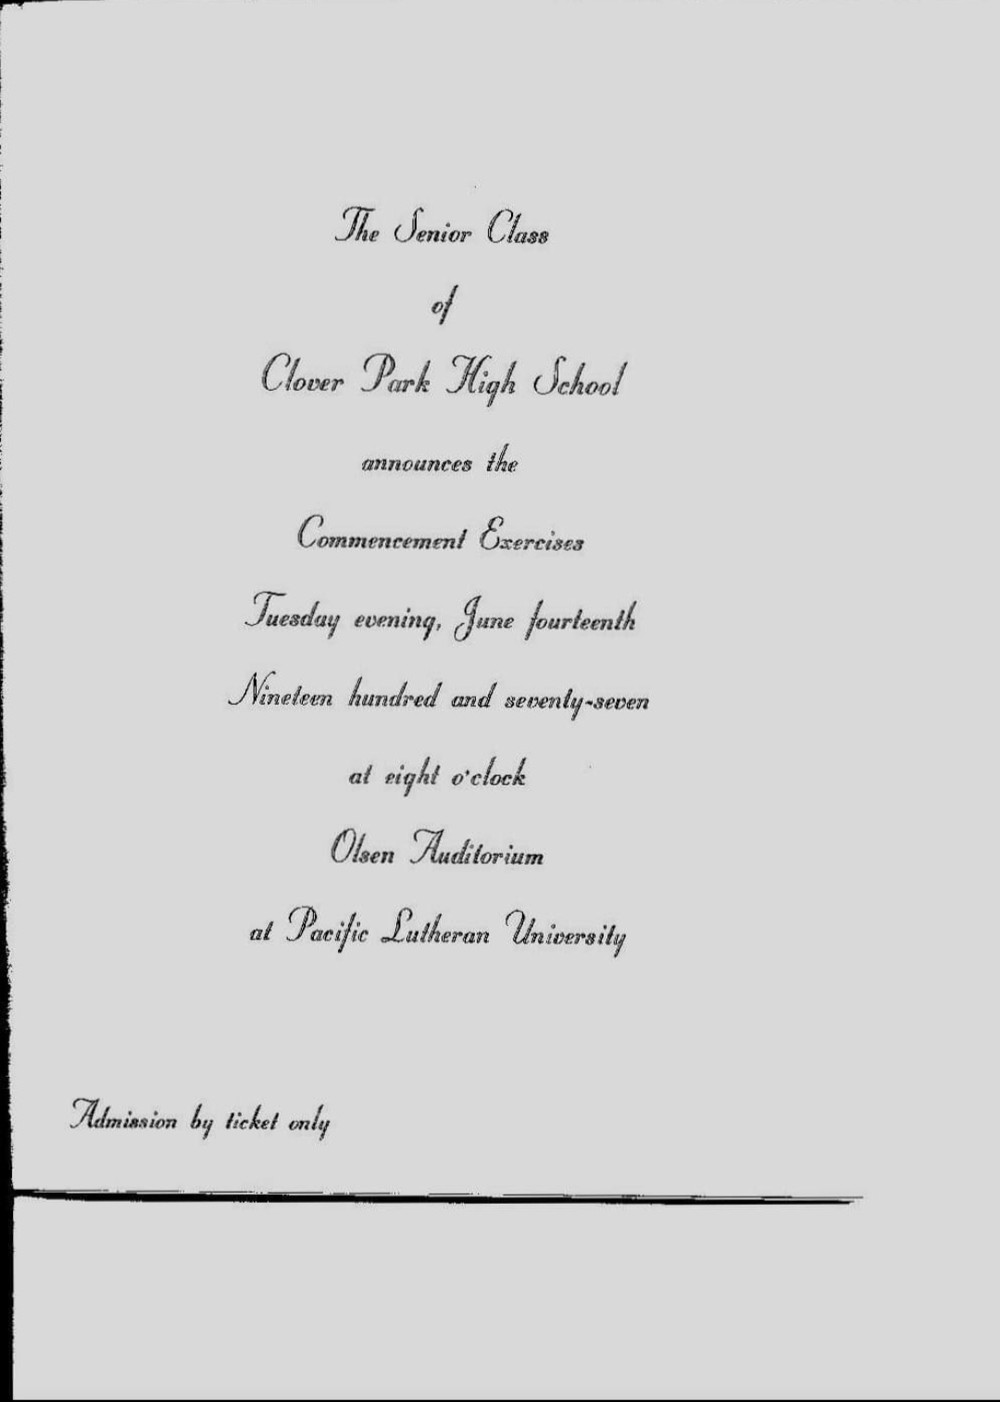 The Senior Class
of
Clover Park High School
announces the
Commencement Exercises
Tuesday evening, June fourteenth
Nineteen hundred and seventy-seven
at eight o'clock
Olsen Auditorium
at Pacific Lutheran University
Admission by ticket only